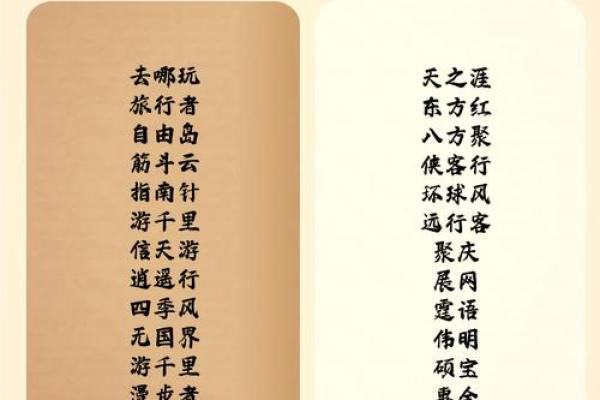 去哪玩
旅行者
自由岛
筋斗云
指南针
游千里
信天游
逍遥行
四季风
无国界
游千里
漫步者
天之涯
东方红
八方聚
侠客行
环球风
远行客
聚庆
展网
霆语
伟明
硕宝
惠金